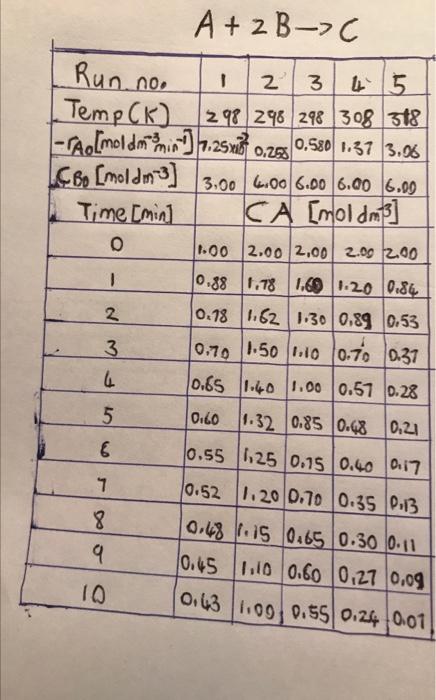 A + 2B → C
Run no. 1 2 3 4 5
Temp (K) 298 298 298 308 318
-rAo [mol dm⁻³ min⁻¹] 7.25x10⁻² 0.258 0.580 1.37 3.06
CBo [mol dm⁻³] 3.00 4.00 6.00 6.00 6.00
Time [min] CA [mol dm⁻³]
0 1.00 2.00 2.00 2.00 2.00
1 0.88 1.78 1.60 1.20 0.84
2 0.78 1.62 1.30 0.89 0.53
3 0.70 1.50 1.10 0.70 0.37
4 0.65 1.40 1.00 0.57 0.28
5 0.60 1.32 0.85 0.48 0.21
6 0.55 1.25 0.75 0.40 0.17
7 0.52 1.20 0.70 0.35 0.13
8 0.48 1.15 0.65 0.30 0.11
9 0.45 1.10 0.60 0.27 0.09
10 0.43 1.00 0.55 0.24 0.01